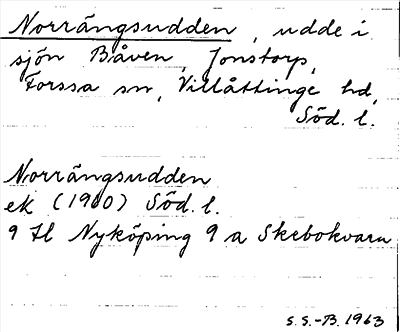 Norrängsudden, udde i
sjön Båven, Jonstorp,
Forssa sn, Villåttinge hd,
Söd. l.
Norrängsudden
ek (1900) Söd. l.
9 Il Nyköping 9 a Skebokvarn
S.S.-B. 1963